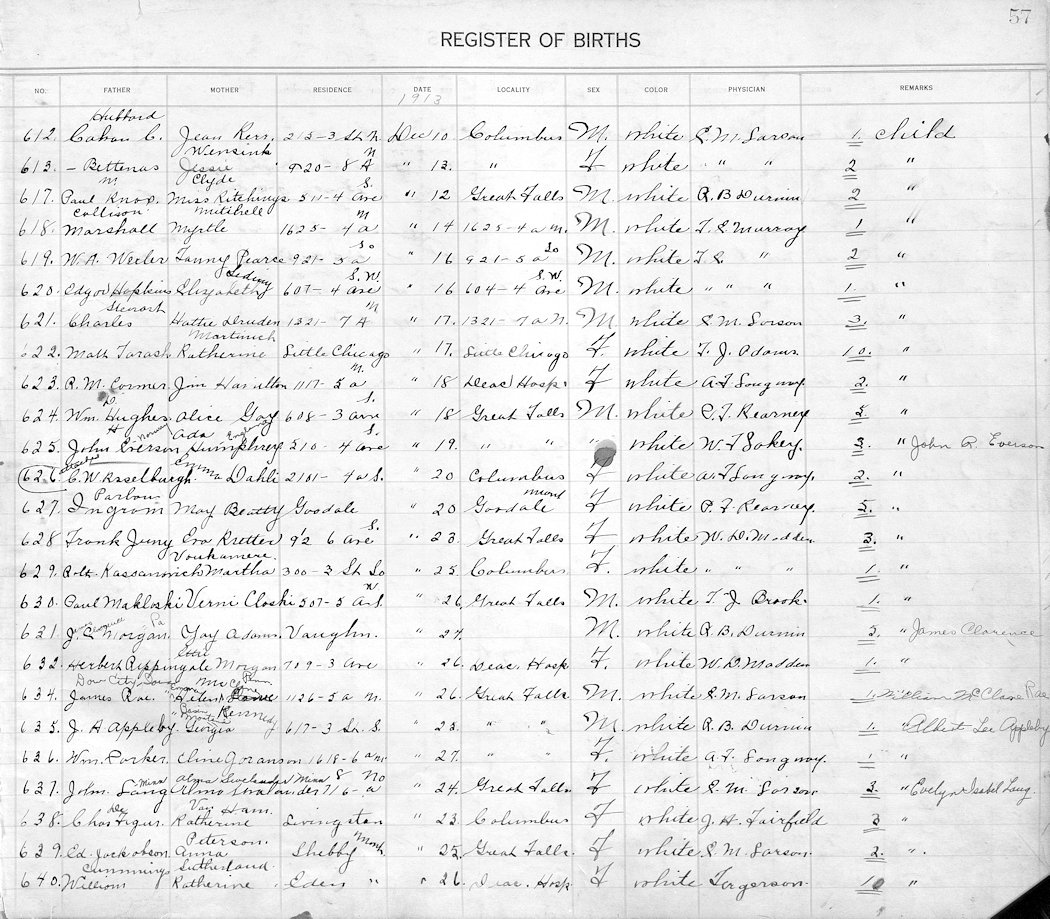 57
REGISTER OF BIRTHS
NO. FATHER MOTHER RESIDENCE DATE LOCALITY SEX COLOR PHYSICIAN REMARKS
1913
Hubbard
612. C. Jean 215-3 St. N. Dec 10 Columbus M. white 1. child
Wensink N
613. - Bettenas Jessie 920-8 A " 13. " F white " " " 2 "
M Clyde S.
617. Paul Knox. Miss Ritchings 511-4 Ave " 12 Great Falls M. white R. B. Durnin 2 "
Collison Mitchell N
618. Marshall Myrtle 1625-4 a " 14 1625-4 a n. M. white T. E. Murray 1 "
So So
619. W. A. Weeler Fanny Pearce 921-5 a " 16 921-5 a M. white T. E. " 2 "
S.W. S.W.
620. Edgar Hopkins Elizabeth 607-4 Ave " 16 604-4 Ave M. white " " " 1. "
Stewart N
621. Charles Hattie Druden 1321-7 A " 17. 1321-7 a N. M white 3. "
Martinich
622. Math Tarash Katherine Little Chicago " 17. Little Chicago F. white T. J. Adams 10. "
N.
623. R. M. Cormer Jim Hamilton 1117-5 a " 18 Deac Hosp. F white A. F. Longway. 2. "
D. S.
624. Wm. Hughes Alice Gay 608-3 Ave " 18 Great Falls M. white P. F. Kearney 5. "
H Norway Ada England S.
625. John Everson Humphrey 510-4 ave " 19. " " " white 3. " John R. Everson
Emma
626. C. W. Raselburgh. Dahli 2101-4 a S. " 20 Columbus F white A. F. Longway. 2. "
Mont
627. Ingram May Beatty Goodale " 20 Goodale F white P. F. Kearney. 5. "
S.
628 Frank Juny Eva Kretter 912 6 ave " 23. Great Falls F. white W. D. Madden 3. "
629. Rolt Kassanwich Martha 300-3 St So " 25. Columbus F. white " " " 1. "
630. Paul Makloski Verni Closki 507-5 A S. " 26, Great Falls M. white T. J. Brook. 1. "
Pa
631. J. C. Morgan. Gay Adams. Vaughn. " 27. M. white R. B. Durnin 5. " James Clarence
632. Herbert Rippingate Morgan 709-3 Ave " 26. Deac. Hosp F. white W. D. Madden 1. "
Dow City, Iowa
634. James Rae. Helen 1126-5 a N. " 26. Great Falls M. white 1. William McClane Rae
Kennedy
635. J. A Appleby Georgia 617-3 St. S. " 23. " " M. white R. B. Durnin 1. " Albert Lee Appleby
636. Wm. Parker. Cline Joranson 1618-6 a N " 27. " " F. white A. F. Longway. 1 "
Minn Alma Minn 8 No
637. John Lang 716-a " 24. Great Falls F white 3. " Evelyn Isabel Lang.
De Van Ham.
638. Chas Figur. Katherine Livingston " 23. Columbus F white J. H. Fairfield 3 "
Peterson. Mont
639. Ed. Jackobson. Anna Shelby " 25. Great Falls. F white 2. "
Cumming Sutherland
640. William Katherine. Eden " " 26. Deac. Hosp F white Torgerson. 10 "